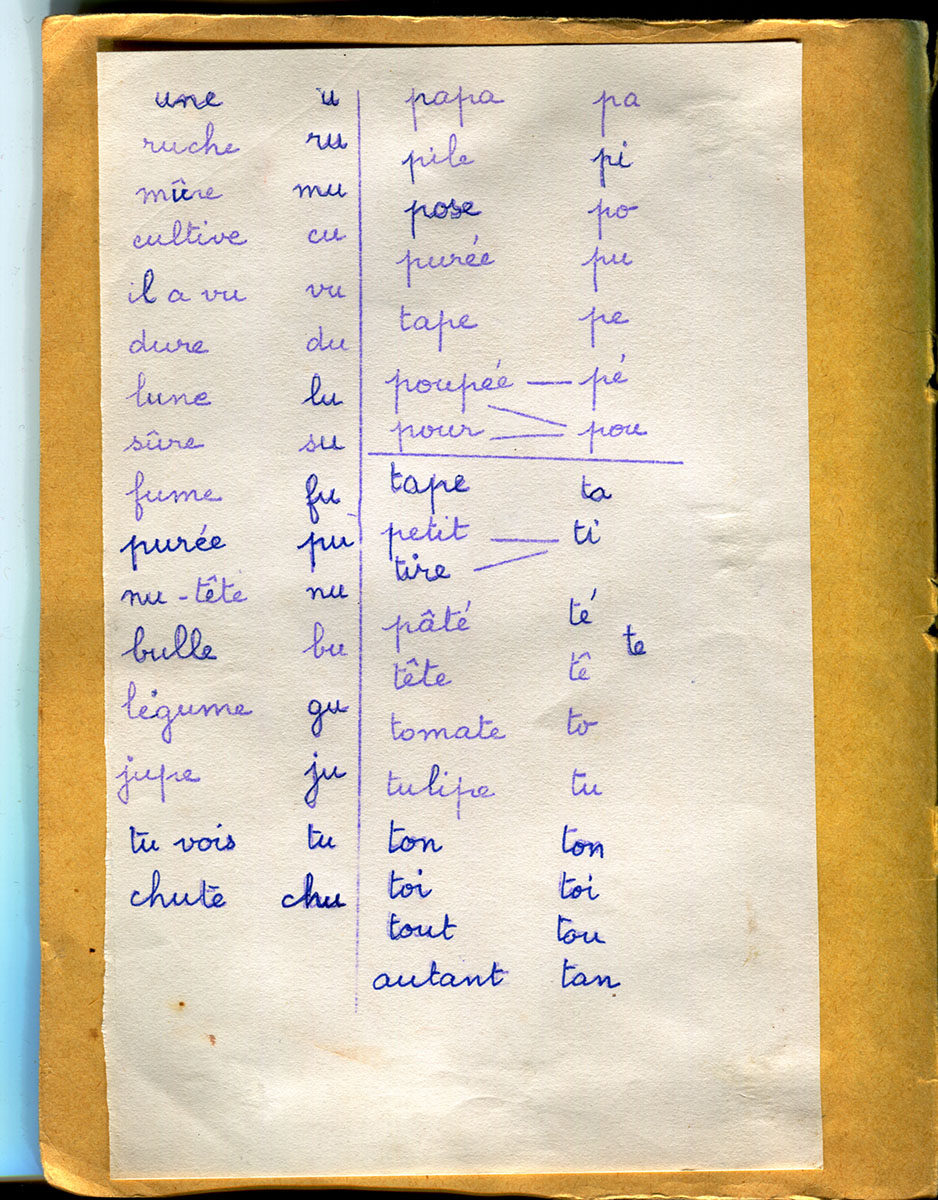 une u
ruche ru
mûre mu
cultive cu
il a vu vu
dure du
lune lu
sûre su
fume fu
purée pu
nu-tête nu
bulle bu
légume gu
jupe ju
tu vois tu
chute chu
papa pa
pile pi
pose po
purée pu
tape pe
poupée pé
pour pou
tape ta
petit ti
tire
pâté té
te
tête tê
tomate to
tulipe tu
ton ton
toi toi
tout tou
autant tan